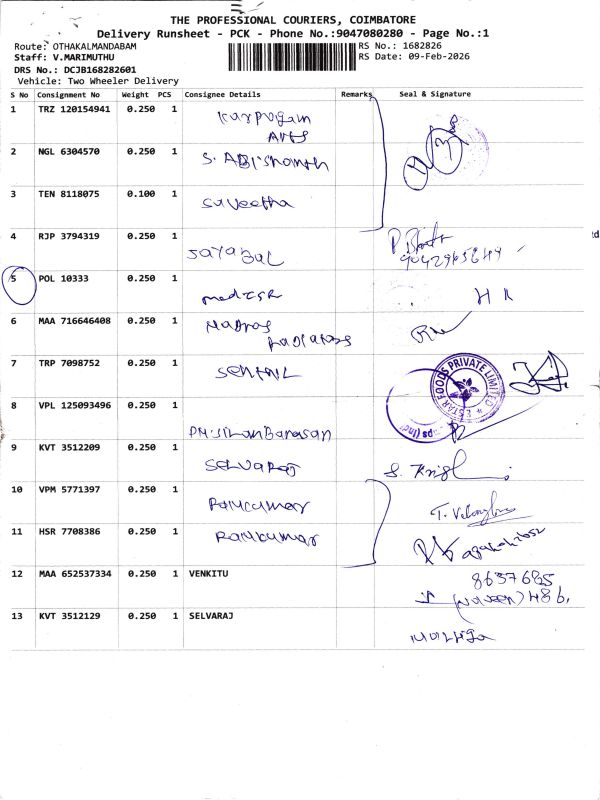 THE PROFESSIONAL COURIERS, COIMBATORE
Delivery Runsheet - PCK - Phone No.:9047080280 - Page No.:1
Route: OTHAKALMANDABAM
RS No.: 1682826
Staff: V.MARIMUTHU
RS Date: 09-Feb-2026
DRS No.: DCJB168282601
Vehicle: Two Wheeler Delivery
S No Consignment No Weight PCS Consignee Details Remarks Seal & Signature
1 TRZ 120154941 0.250 1 Karpagam
Arts
2 NGL 6304570 0.250 1 S.
3 TEN 8118075 0.100 1 Saveetha
4 RJP 3794319 0.250 1
5 POL 10333 0.250 1 H R
6 MAA 716646408 0.250 1 Madras
7 TRP 7098752 0.250 1 Senthil
STAR FOODS PRIVATE LIMITED
8 VPL 125093496 0.250 1
9 KVT 3512209 0.250 1 Selvaraj S.
10 VPM 5771397 0.250 1 Ramkumar
11 HSR 7708386 0.250 1 Ramkumar
12 MAA 652537334 0.250 1 VENKITU 8637685
(Naveen) 486.
13 KVT 3512129 0.250 1 SELVARAJ